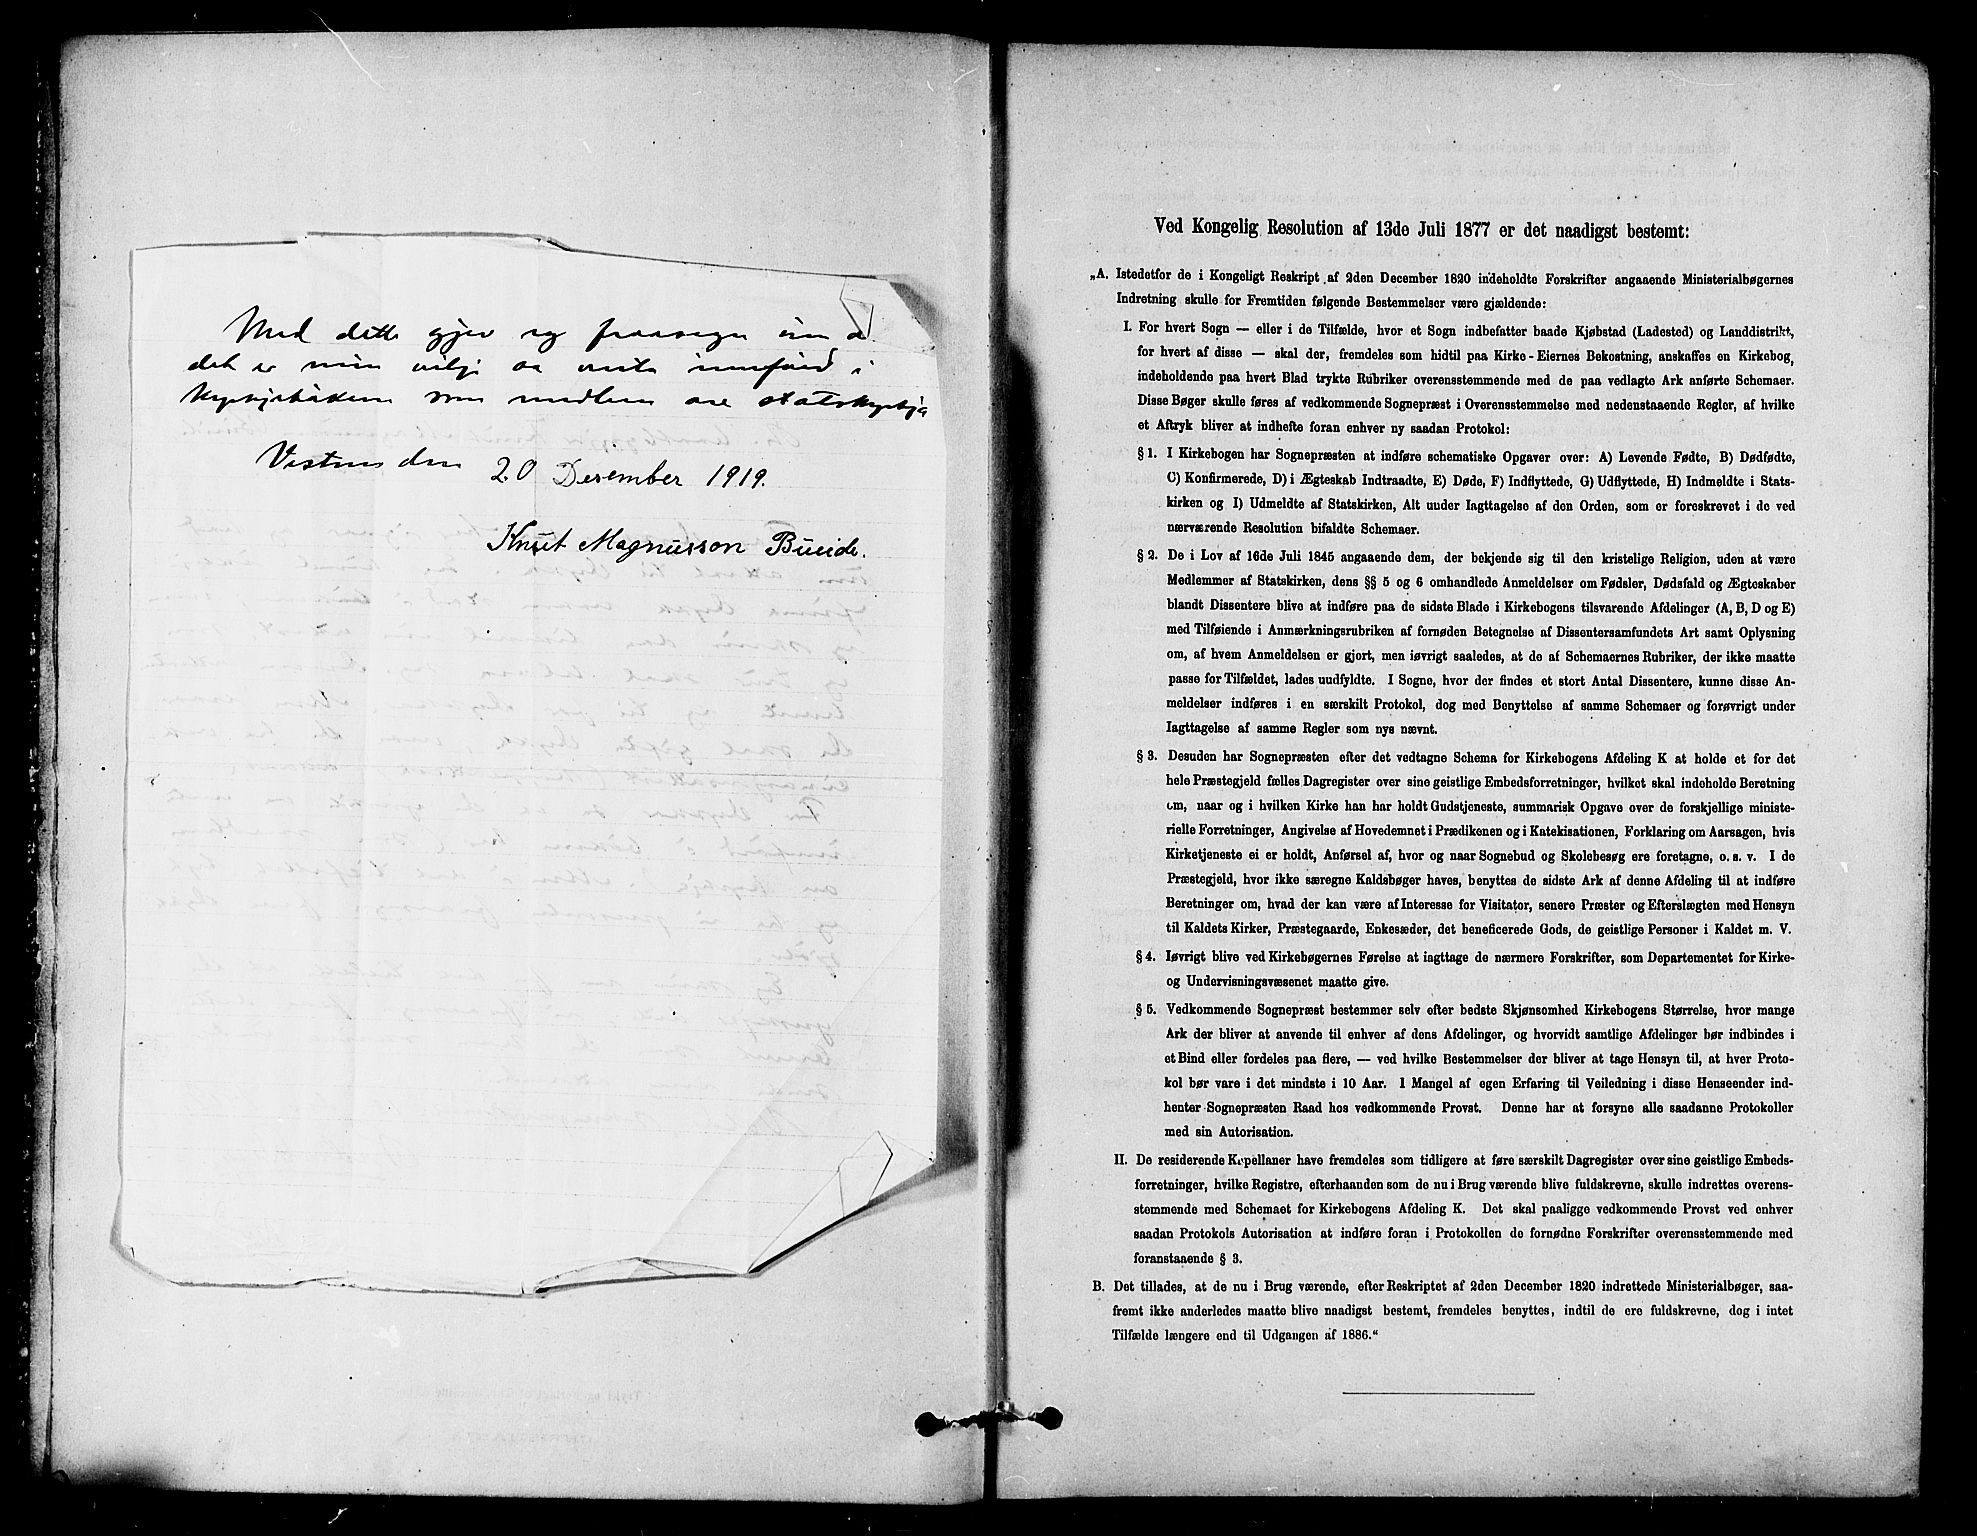 Med dette gjev eg fraasegn um at
det er min vilje aa verta innførd i
kyrkjeboken som medlem av statskyrkja
Vistnes den 20 Desember 1919.
Knut Magnusson Bueide.
Ved Kongelig Resolution af 13de Juli 1877 er det naadigst bestemt:
„A. Istedetfor de i Kongeligt Reskript af 2den December 1820 indeholdte Forskrifter angaaende Ministerialbøgernes
Indretning skulle for Fremtiden følgende Bestemmelser være gjældende:
I. For hvert Sogn — eller i de Tilfælde, hvor et Sogn indbefatter baade Kjøbstad (Ladested) og Landdistrikt,
for hvert af disse — skal der, fremdeles som hidtil paa Kirke-Eiernes Bekostning, anskaffes en Kirkebog,
indeholdende paa hvert Blad trykte Rubriker overensstemmende med de paa vedlagte Ark anførte Schemaer.
Disse Bøger skulle føres af vedkommende Sognepræst i Overensstemmelse med nedenstaaende Regler, af hvilke
et Aftryk bliver at indhefte foran enhver ny saadan Protokol:
§ 1. I Kirkebogen har Sognepræsten at indføre schematiske Opgaver over: A) Levende Fødte, B) Dødfødte,
C) Konfirmerede, D) i Ægteskab Indtraadte, E) Døde, F) Indflyttede, G) Udflyttede, H) Indmeldte i Stats-
kirken og I) Udmeldte af Statskirken, Alt under Iagttagelse af den Orden, som er foreskrevet i de ved
nærværende Resolution bifaldte Schemaer.
§ 2. De i Lov af 16de Juli 1845 angaaende dem, der bekjende sig til den kristelige Religion, uden at være
Medlemmer af Statskirken, dens §§ 5 og 6 omhandlede Anmeldelser om Fødsler, Dødsfald og Ægteskaber
blandt Dissentere blive at indføre paa de sidste Blade i Kirkebogens tilsvarende Afdelinger (A, B, D og E)
med Tilføiende i Anmærkningsrubriken af fornøden Betegnelse af Dissentersamfundets Art samt Oplysning
om, af hvem Anmeldelsen er gjort, men iøvrigt saaledes, at de af Schemaernes Rubriker, der ikke maatte
passe for Tilfældet, lades uudfyldte. I Sogne, hvor der findes et stort Antal Dissentere, kunne disse An-
meldelser indføres i en særskilt Protokol, dog med Benyttelse af samme Schemaer og forøvrigt under
Iagttagelse af samme Regler som nys nævnt.
§ 3. Desuden har Sognepræsten efter det vedtagne Schema for Kirkebogens Afdeling K at holde et for det
hele Præstegjeld fælles Dagregister over sine geistlige Embedsforretninger, hvilket skal indeholde Beretning
om, naar og i hvilken Kirke han har holdt Gudstjeneste, summarisk Opgave over de forskjellige ministe-
rielle Forretninger, Angivelse af Hovedemnet i Prædikenen og i Katekisationen, Forklaring om Aarsagen, hvis
Kirketjeneste ei er holdt, Anførsel af, hvor og naar Sognebud og Skolebesøg ere foretagne, o. s. v. I de
Præstegjeld, hvor ikke særegne Kaldsbøger haves, benyttes de sidste Ark af denne Afdeling til at indføre
Beretninger om, hvad der kan være af Interesse for Visitator, senere Præster og Efterslægten med Hensyn
til Kaldets Kirker, Præstegaarde, Enkesæder, det beneficerede Gods, de geistlige Personer i Kaldet m. V.
§ 4. Iøvrigt blive ved Kirkebøgernes Førelse at iagttage de nærmere Forskrifter, som Departementet for Kirke-
og Undervisningsvæsenet maatte give.
§ 5. Vedkommende Sognepræst bestemmer selv efter bedste Skjønsomhed Kirkebogens Størrelse, hvor mange
Ark der bliver at anvende til enhver af dens Afdelinger, og hvorvidt samtlige Afdelinger bør indbindes i
et Bind eller fordeles paa flere, — ved hvilke Bestemmelser der bliver at tage Hensyn til, at hver Proto-
kol bør vare i det mindste i 10 Aar. I Mangel af egen Erfaring til Veiledning i disse Henseender ind-
henter Sognepræsten Raad hos vedkommende Provst. Denne har at forsyne alle saadanne Protokoller
med sin Autorisation.
II. De residerende Kapellaner have fremdeles som tidligere at føre særskilt Dagregister over sine geistlige Embeds-
forretninger, hvilke Registre, efterhaanden som de nu i Brug værende blive fuldskrevne, skulle indrettes overens-
stemmende med Schemaet for Kirkebogens Afdeling K. Det skal paaligge vedkommende Provst ved enhver
saadan Protokols Autorisation at indføre foran i Protokollen de fornødne Forskrifter overensstemmende med
foranstaaende § 3.
B. Det tillades, at de nu i Brug værende, efter Reskriptet af 2den December 1820 indrettede Ministerialbøger, saa-
fremt ikke anderledes maatte blive naadigst bestemt, fremdeles benyttes, indtil de ere fuldskrevne, dog i intet
Tilfælde længere end til Udgangen af 1886.“